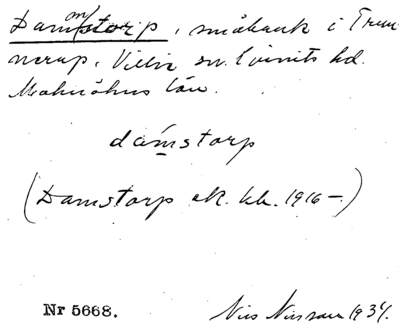 Dammstorp, småbruk i Trun-
nerup, Villie sn. Ljunits hd.
Malmöhus län.
dámstorp
(Damstorp ek. kb. 1916–.)
Nr 5668. Nils Nilsson 1934.